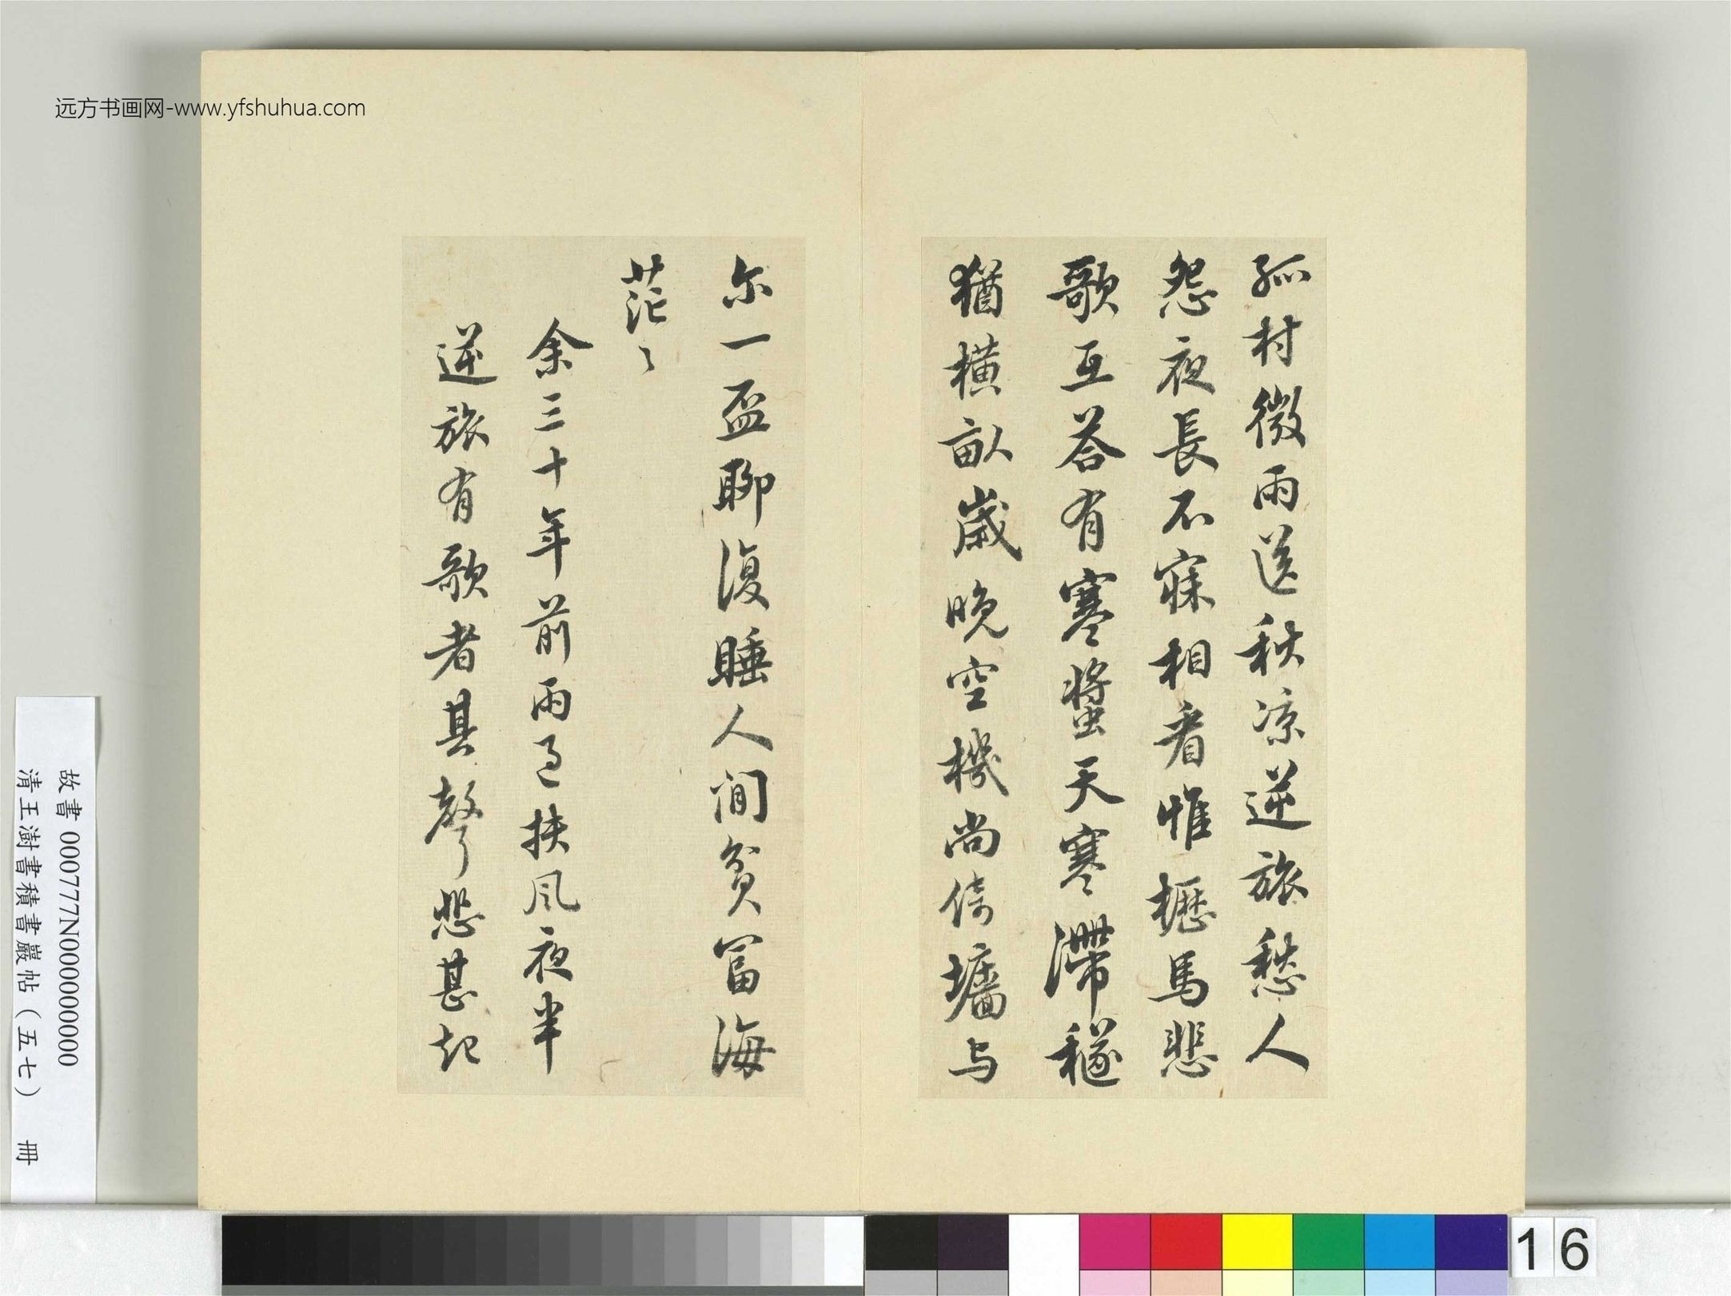 远方书画网-www.yfshuhua.com
孤村微雨送秋凉逆旅愁人
怨夜長不寐相看惟櫪馬悲
歌互答有寒螿天寒滯穟
猶橫畝歲晚空機尚倚墻与
尔一盃聊復睡人間貧富海
茫〻
余三十年前雨過扶风夜半
逆旅有歌者其聲悲甚起
故書 000777N000000000
清王澍書積書巖帖（五七） 冊
16